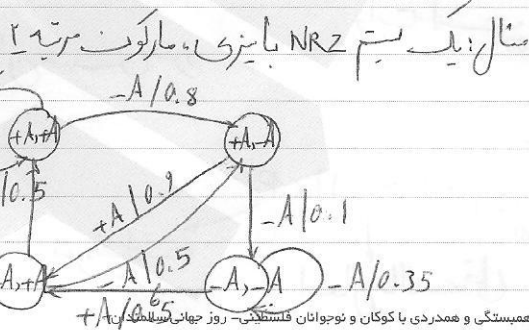 مثال: یک سیستم NRZ باینری، مارکوف مرتبه ۲
-A/0.8
+A,+A
+A,-A
/0.5
+A/0.9
-A/0.1
-A/0.5
-A,+A
-A,-A
-A/0.35
+A/0.65
همبستگی و همدردی با کودکان و نوجوانان فلسطینی- روز جهانی سالمندان